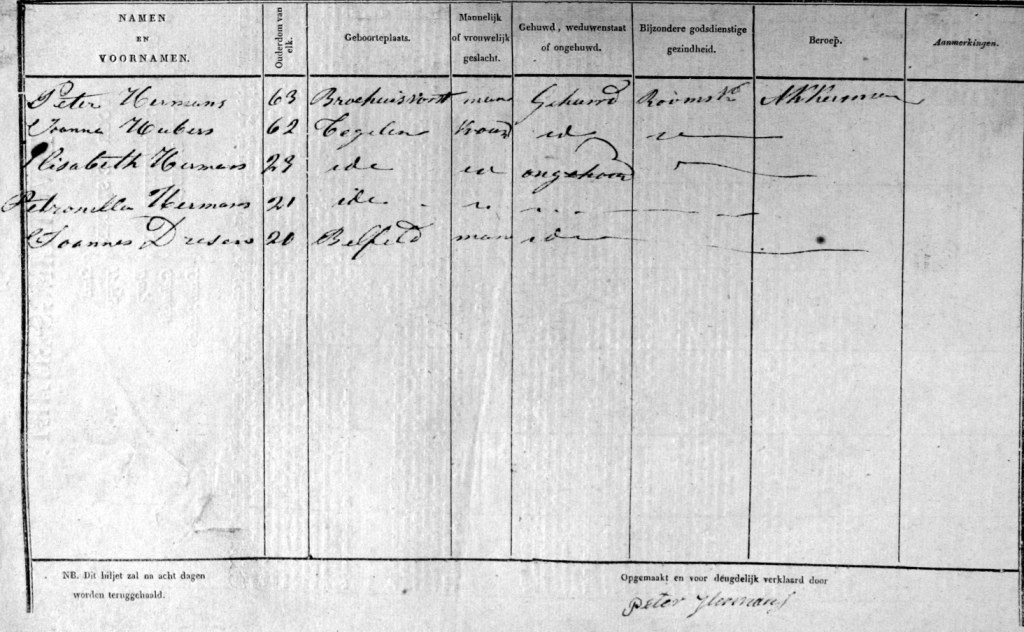 NAMEN EN VOORNAMEN. Ouderdom van elk. Geboorteplaats. Mannelijk of vrouwelijk geslacht. Gehuwd, weduwenstaat of ongehuwd. Bijzondere godsdienstige gezindheid. Beroep. Aanmerkingen.
Peter Hermans 63 Broehuisvorst man Gehuwd Rooms Akkerman
Joanna Hubers 62 Tegelen vrouw id
Elisabeth Hermans 29 ide ongehoud
Petronella Hermans 21 ide
Joannes Dresens 20 Belfeld man ide
NB. Dit biljet zal na acht dagen
worden teruggehaald.
Opgemaakt en voor deugdelijk verklaard door
Peter Hermans